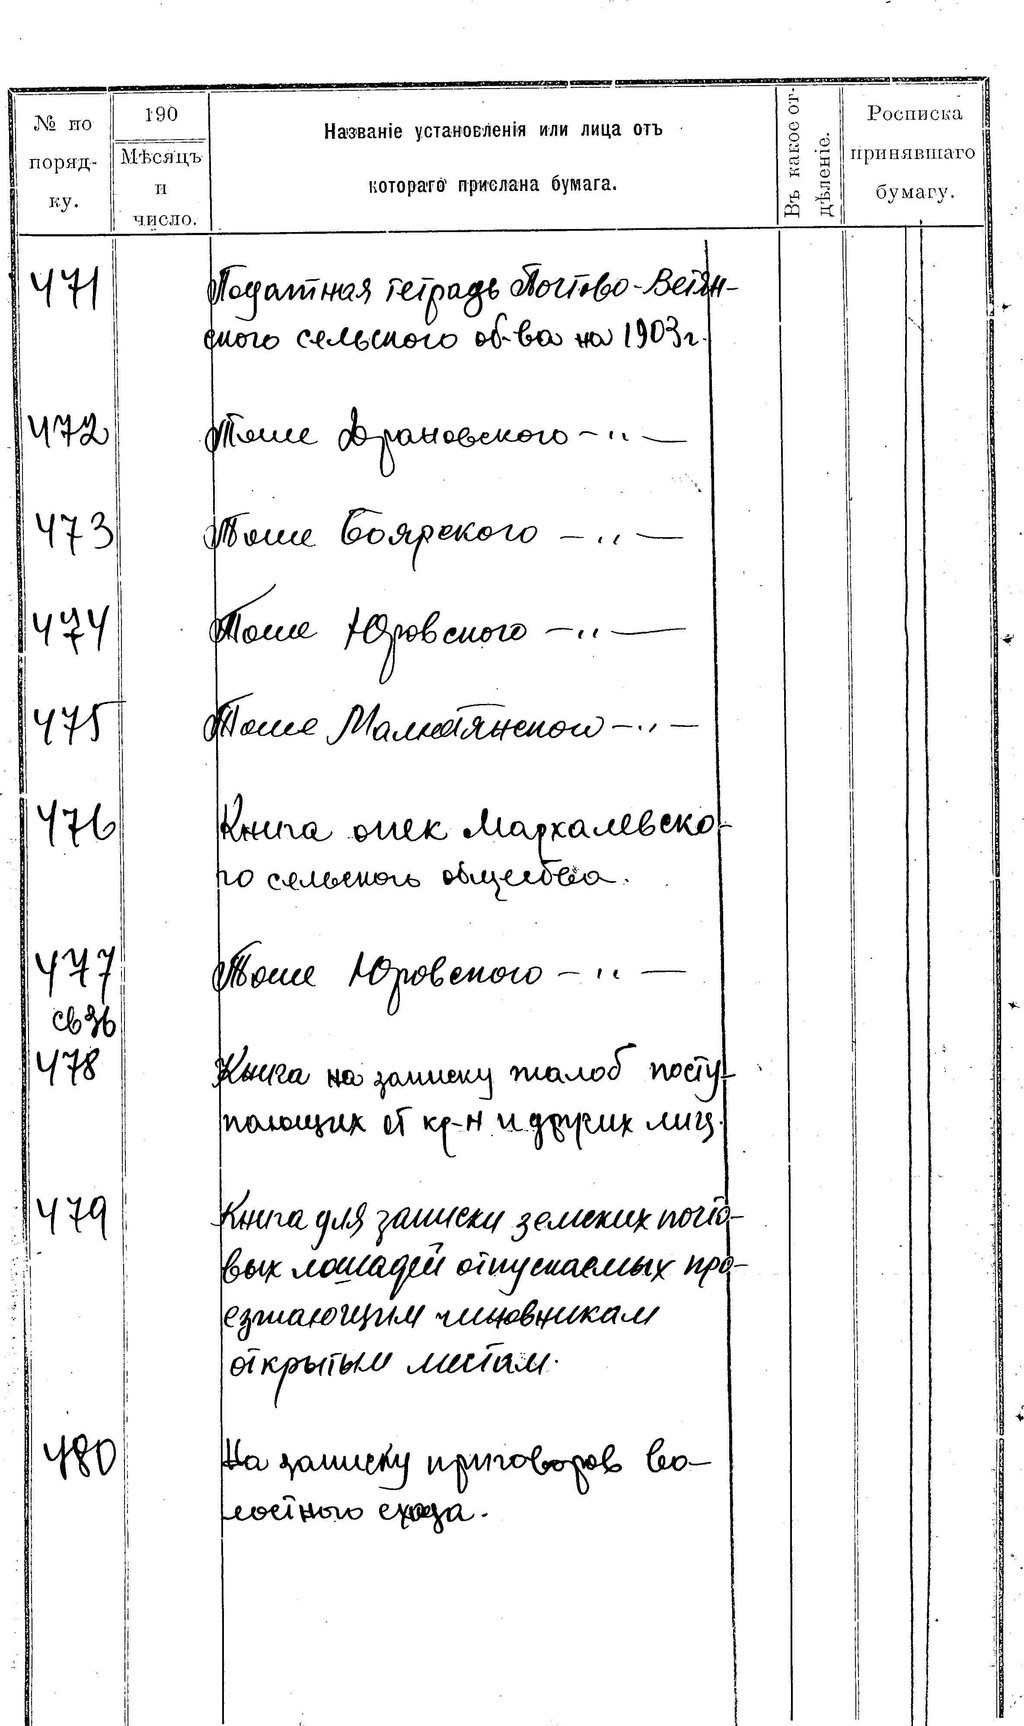 № по поряд- ку.
190
Мѣсяцъ и число.
Названіе установленія или лица отъ
котораго прислана бумага.
Въ какое от- дѣленіе.
Росписка принявшаго бумагу.
471 Податная тетрадь Постово-Ветян-
ского сельского об-ва на 1903г.
472 Тоже Драновского —"—
473 Тоже Боярского —"—
474 Тоже Юровского —"—
475 Тоже —"—
476 Книга опек Мархалевско-
го сельского общества.
477 Тоже Юровского —"—
478 Книга на записку жалоб посту-
пающих от кр-н и других лиц.
479 Книга для записки земских почто-
вых лошадей отпускаемых про-
езжающим чиновникам
открытым листам.
480 На записку приговоров во-
лостного схода.